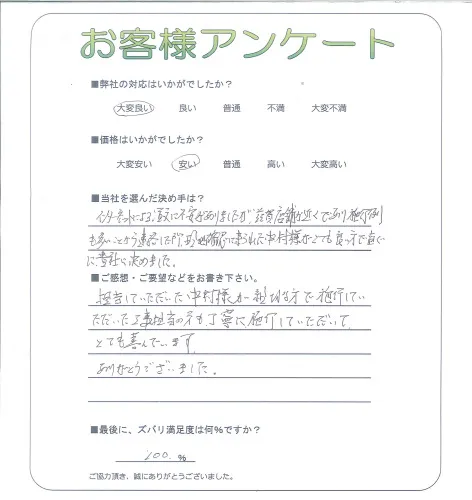 お客様アンケート
■弊社の対応はいかがでしたか？
大変良い 良い 普通 不満 大変不満
■価格はいかがでしたか？
大変安い 安い 普通 高い 大変高い
■当社を選んだ決め手は？
に不安がありましたが、滋賀店舗が近くであり施行例
も多いことから連絡した所、現地確認に来られた中村様がとても良い方で直ぐ
に貴社に決めました。
■ご感想・ご要望などをお書き下さい。
担当していただいた中村様が親切な方で施行してい
ただいた工事担当の方も丁寧に施行していただいて
とても喜んでいます
ありがとうございました。
■最後に、ズバリ満足度は何%ですか？
100 %
ご協力頂き、誠にありがとうございました。